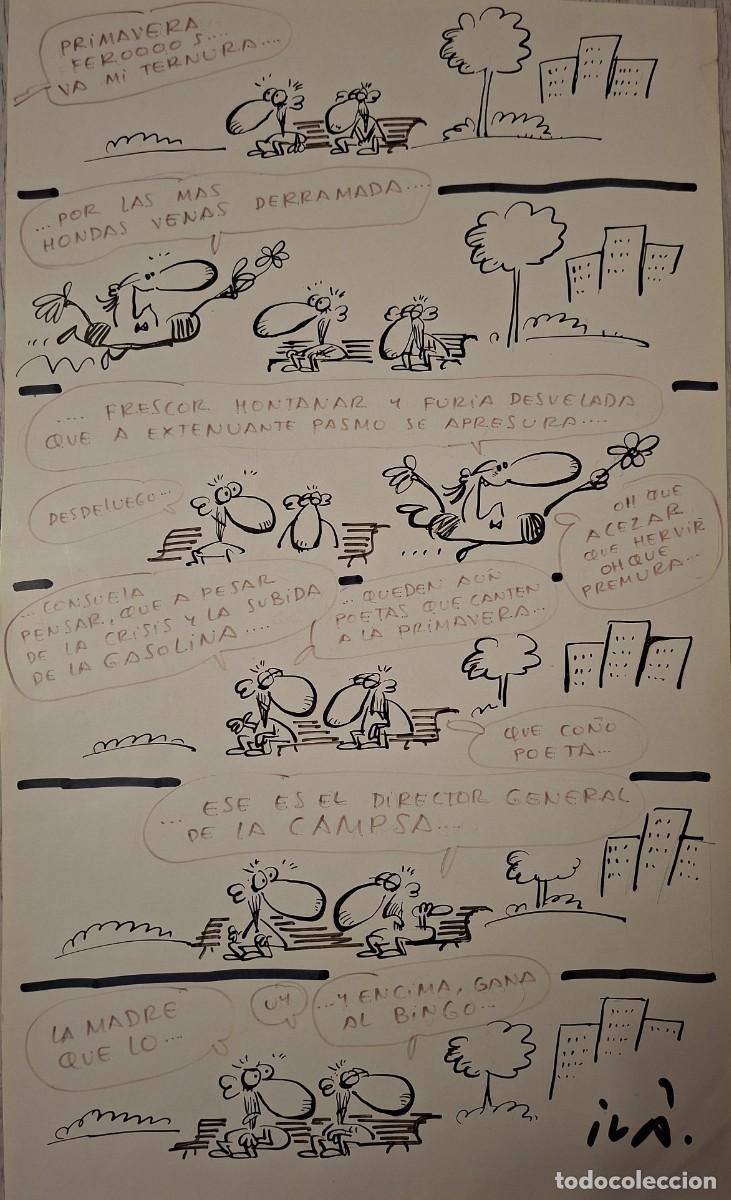 PRIMAVERA
FEROOOO S....
VA MI TERNURA....
...POR LAS MAS
HONDAS VENAS DERRAMADA....
.... FRESCOR MONTANAR Y FURIA DESVELADA
QUE A EXTENUANTE PASMO SE APRESURA....
DESDELUEGO...
OH QUE
ACEZAR
QUE HERVIR
OH QUE
PREMURA...
...CONSUELA
PENSAR, QUE A PESAR
DE LA CRISIS Y LA SUBIDA
DE LA GASOLINA....
...QUEDEN AUN
POETAS QUE CANTEN
A LA PRIMAVERA...
QUE COÑO
POETA...
... ESE ES EL DIRECTOR GENERAL
DE LA CAMPSA....
LA MADRE
QUE LO...
UY
...Y ENCIMA, GANA
AL BINGO...
iVÀ.
todocoleccion